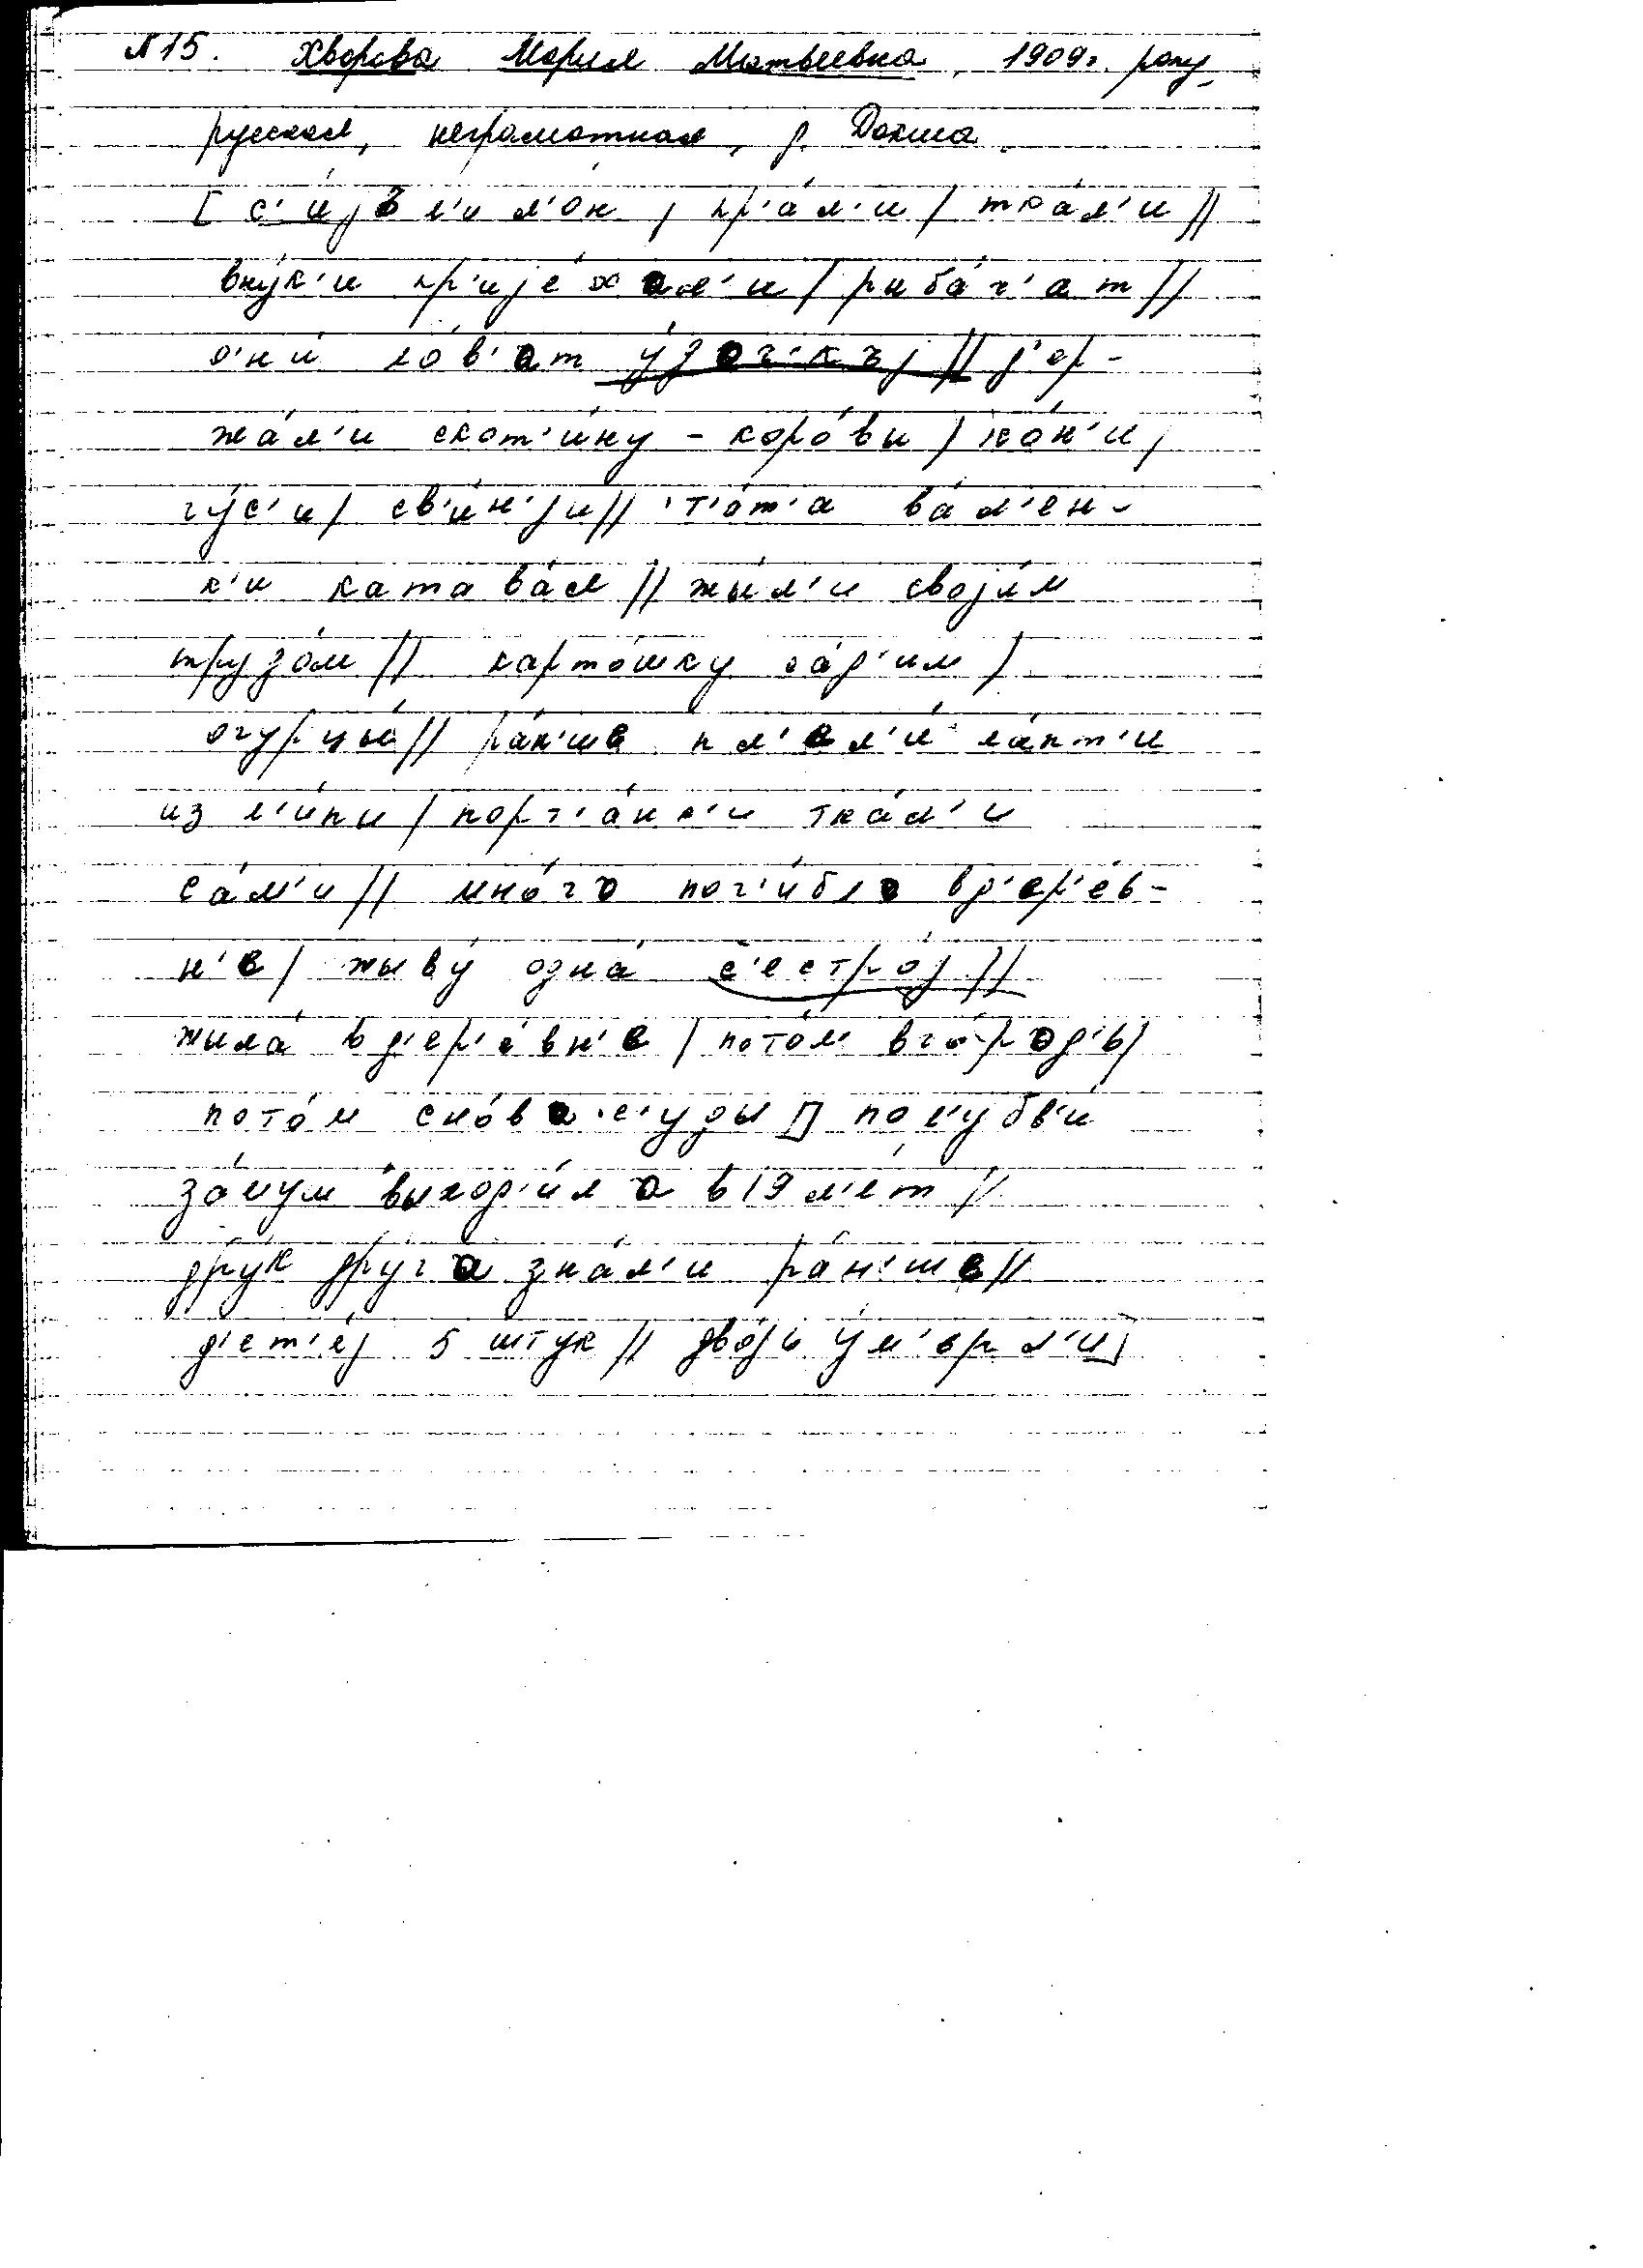 N 15. Хворова Мария Матвеевна, 1909 г. рожд.
русская, неграмотная, д. Докша.
[с'и́јьл'и л'он, пр'а́л'и / тка́л'и //
вну́к'и пр'ије́хал'и / риба́ч'ат //
он'и́ ло́в'ат у́дочкъј // д'ер-
жа́л'и скот'и́ну - коро́ви / ко́н'и,
гу́с'и / св'и́н'ји // т'о́т'а ва́л'ен-
к'и катава́л // жы́л'и свои́м
трудо́м // карто́шку са́д'им /
огурцы́ // ра́н'ше пл'ел'и́ ла́пт'и
из л'и́пи / порт'а́нк'и тка́л'и
са́м'и // мно́го пог'и́бло вд'ер'е́в-
н'е / жыву́ одна́ с'естро́ј //
жыла́ вд'ер'е́вн'е / пото́м вго́род'ь /
пото́м сно́ва с'уды́ // пол'убв'и́
за́муж выход'и́ла в 19 л'ет //
дру́к дру́га зна́л'и ра́н'ше //
д'ет'е́ј 5 штук // дво́јь у́м'ерл'и]